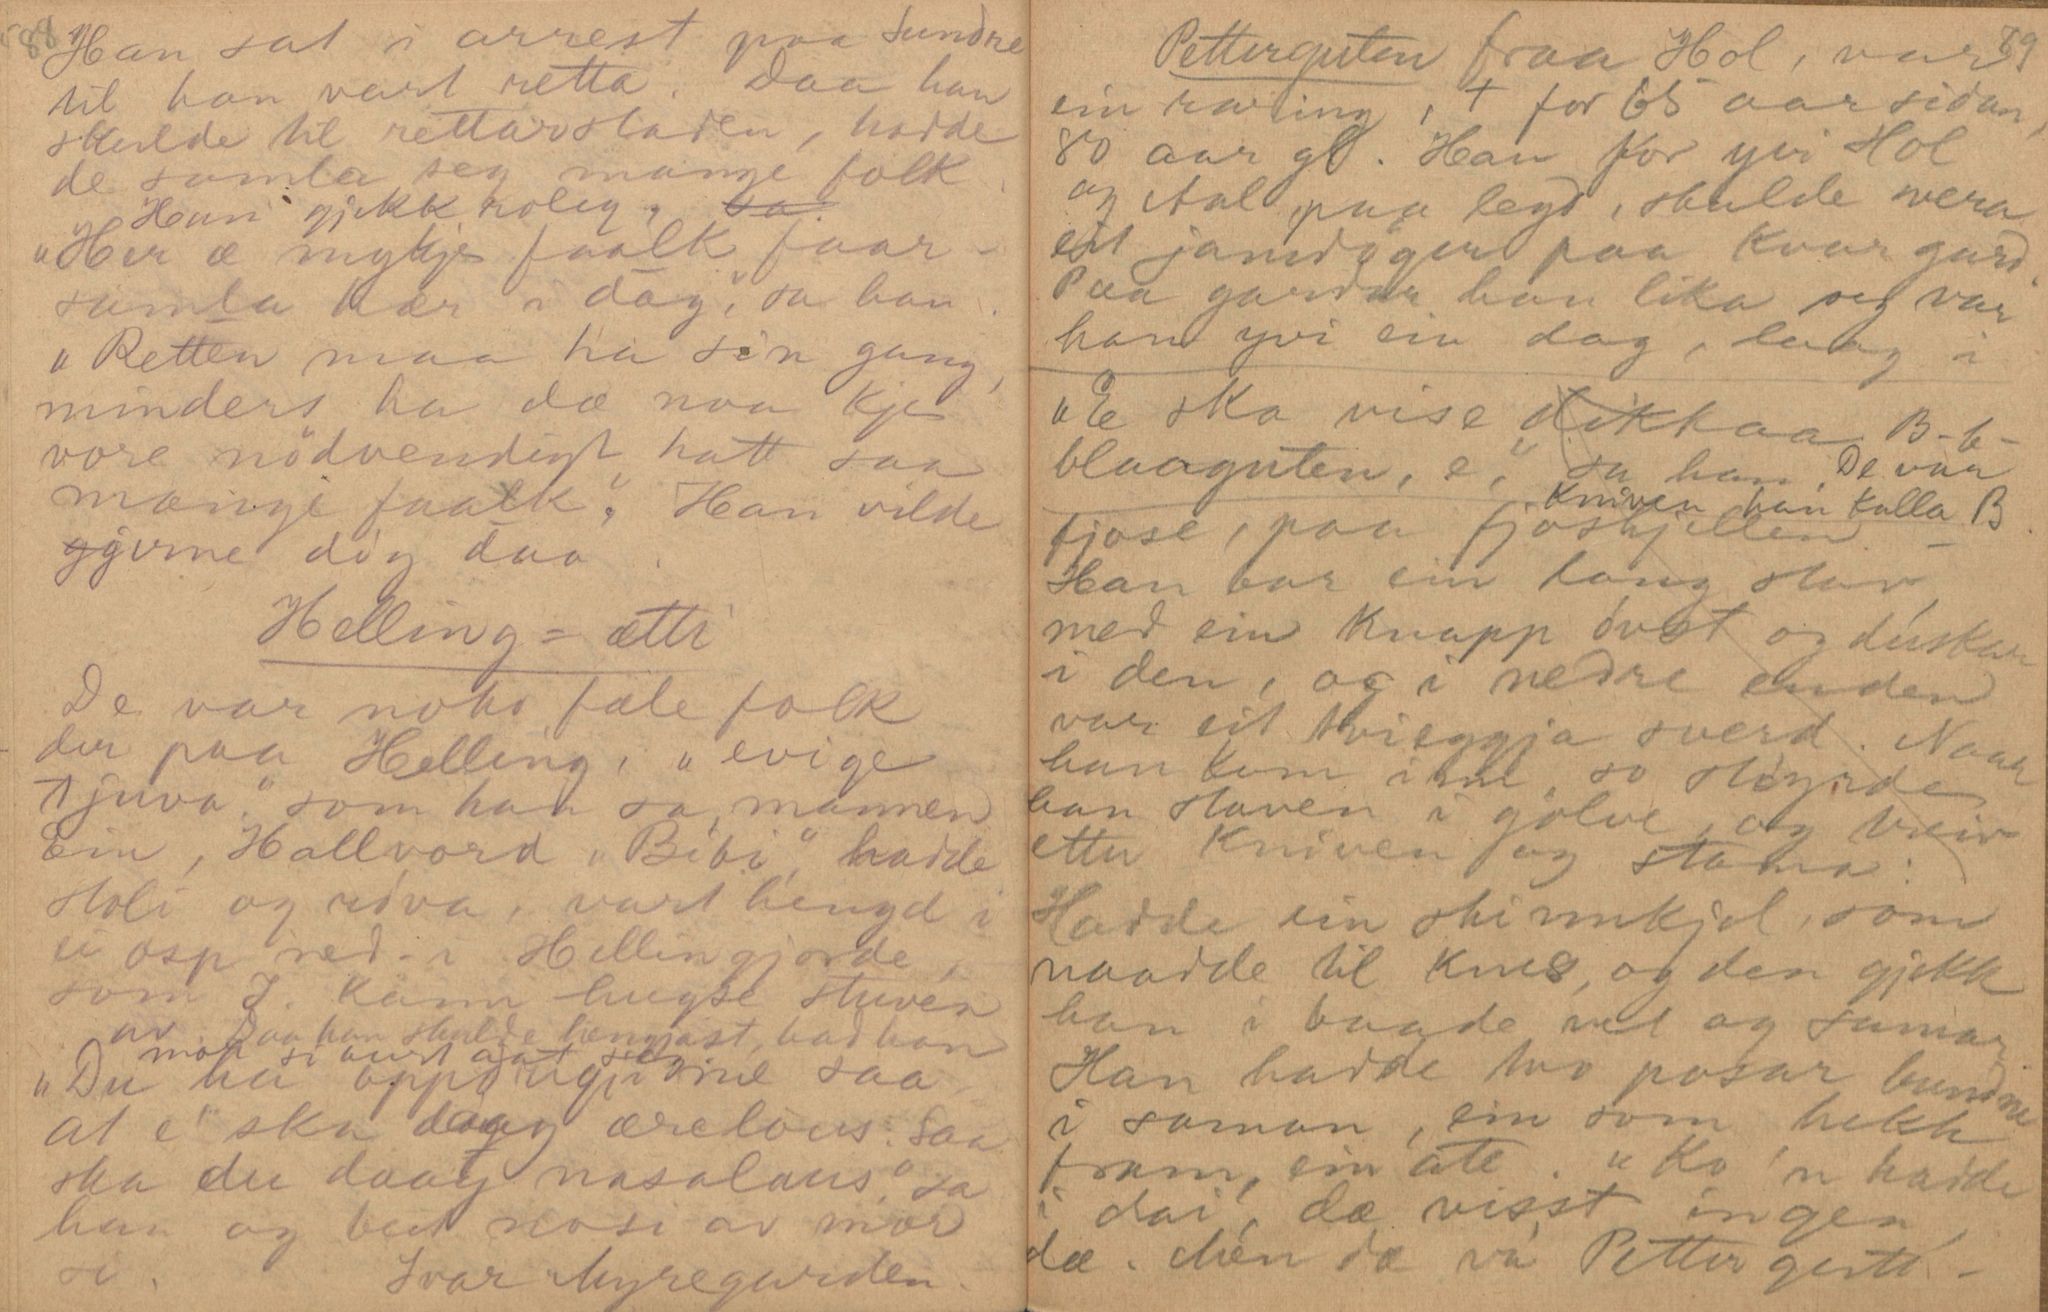 88
Han sat i arrest paa Sundre
til han vart retta. Daa han
skulde til rettarstaden, hadde
de samla seg mange folk.
Han gjekk roleg,
"Her æ mykje faalk faar-
samla hær i dag", sa han.
"Retten maa ha sin gang,
minders ha dæ noa kje
vore nödvendigt hatt saa
mænge faalk". Han vilde
gjerne döy daa.
Helling-ætti
De var noko fæle folk
der paa Helling, "evige
tjuva" som han sa, mannen
Ein, Hallvord "Bibi", hadde
stoli og röva, vart hengd i
ei osp ned i Hellingjorde,
som J. kann hugse stuven
av. Daa han skulde hengjast, bad han
mor si
"Du ha
at e ska döy ærelous. Saa
ska du daay nasalaus", sa
han og beit nosi av mor
si. Ivar Myregarden.
89
Petterguten fraa Hol, var
ein raring, + for 65 aar sidan,
80 aar gl. Han for yvi Hol
og Aal paa legd, skulde vera
eit jamdöger paa kvar gard.
Paa gardar han lika seg var
han yvi ein dag, laag i
"E ska vise dikkaa B-b-
blaaguten, e", sa han. De var
kniven han kalla B.
fjose, paa fjoshjellen
Han bar ein lang stav,
med ein knapp övst og duskar
i den, og i nedre enden
var eit tvieggja sverd. Naar
han kom inn, so stöyrde
han staven i golve, og treiv
etter kniven og stama:
Hadde ein skinnkjol, som
naadde til knes, og den gjekk
han i baade vet og sumar
Han hadde tvo posar bundne
i saman, ein som hekk
fram, ein ate. "Ko 'n hadde
i dai, dæ visst ingen
dæ. Men dæ va Pettergutt-